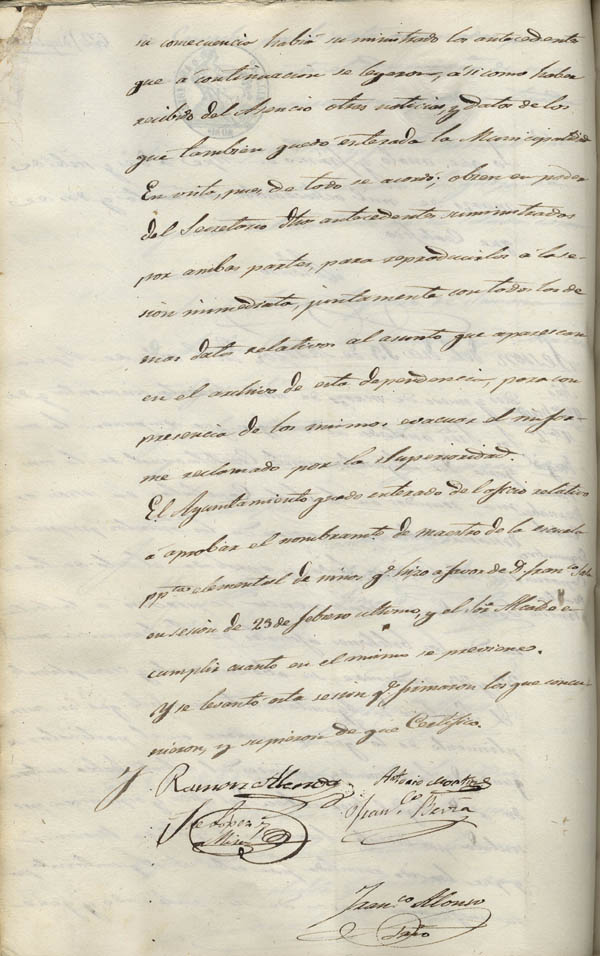 su consecuencia habia suministrado los antecedentes
que a continuacion se leyeron, asi como haber
recibido del Asencio otras noticias, y datos de los
que tambien quedo enterada la Municipalidad
En vista, pues, de todo se acordó; obren en poder
del Secretario dhos antecedentes suministrados
por ambas partes, para reproducirlos á la se-
sion inmediata, juntamente con todos los de
mas datos relativos al asunto que aparescan
en el archivo de esta dependencia, para con
presencia de los mismos evacuar el infor-
me reclamado por la Superioridad.
El Ayuntamiento quedo enterado del oficio relativo
á aprobar el nombramto de maestro de la escuela
ppca elemental de niños qe hizo a favor de D. Franco
en sesion de 23 de febrero ultimo, y el Sor Alcalde
cumplir cuanto en el mismo se previene.
Y se levantó esta sesion qe firmaron los que concu-
rrieron, y supieron de que Certifico.
Ramon Mendez
Antonio Martinez
Jose Lopez
Franco
Franco Alonso